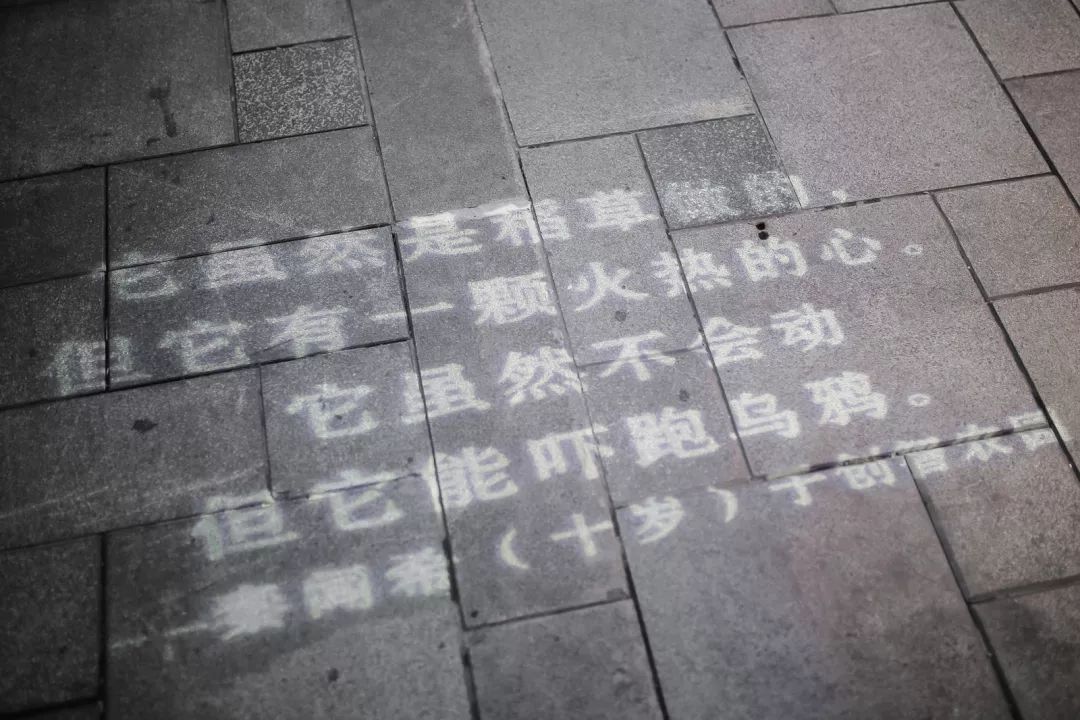 它虽然是稻草做的，
但它有一颗火热的心。
它虽然不会动
但它能吓跑乌鸦。
（十岁）于创智农园